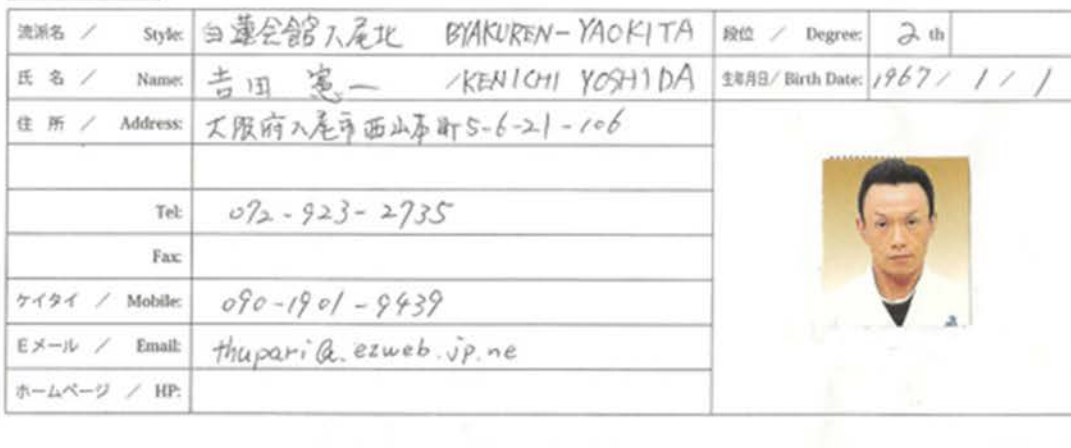 流派名 / Style: 白蓮会館八尾北 BYAKUREN-YAOKITA 段位 / Degree: 2 th
氏 名 / Name: 吉田 憲一 /KENICHI YOSHIDA 生年月日 / Birth Date: 1967 / 1 / 1
住 所 / Address: 大阪府八尾市西山本町5-6-21-106
Tel: 072-923-2735
Fax:
ケイタイ / Mobile: 090-1901-9439
Eメール / Email: thupari@.ezweb.jp.ne
ホームページ / HP: